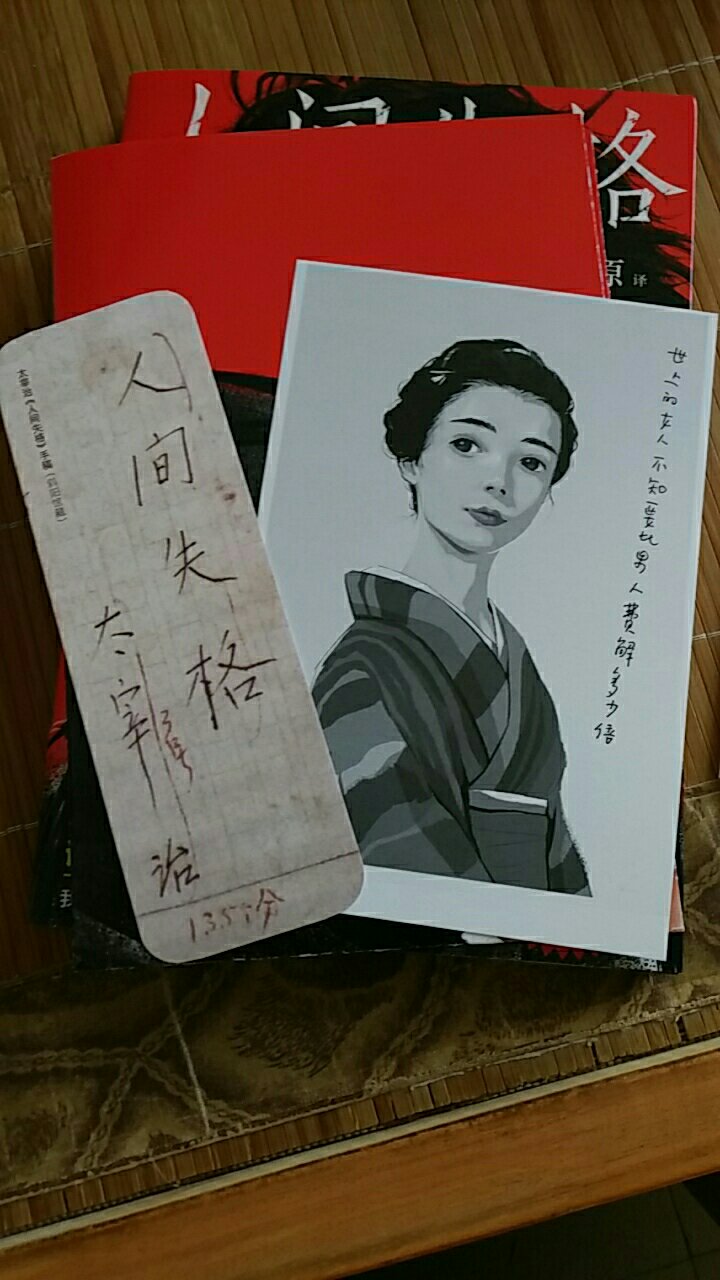 人间失格
原 译
人间失格
太宰治
太宰治《人间失格》手稿
135分
世上的女人 不知要比男人费解多少倍
我